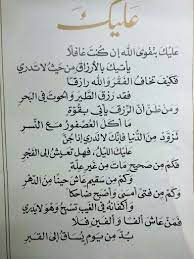 عليك
عليك بتقوى الله إن كنت غافلا
يأتيك بالأرزاق من حيث لا تدري
فكيف تخاف الفقر والله رازقا
فقد رزق الطير والحوت في البحر
ومن ظن أن الرزق يأتي بقوة
ما أكل العصفور مع النسر
نزود من الدنيا فإنك لا تدري إذا جن
عليك الليل، فهل تعيش إلى الفجر
فكم من صحيح مات من غير علة
وكم من سقيم عاش حينا من الدهر
وكم من فتى أمسى وأصبح ضاحكا
وأكفانه في الغيب تنسج وهو لا يدري
فمن عاش ألفا وألفين فلا
بد من يوم يساق إلى القبر